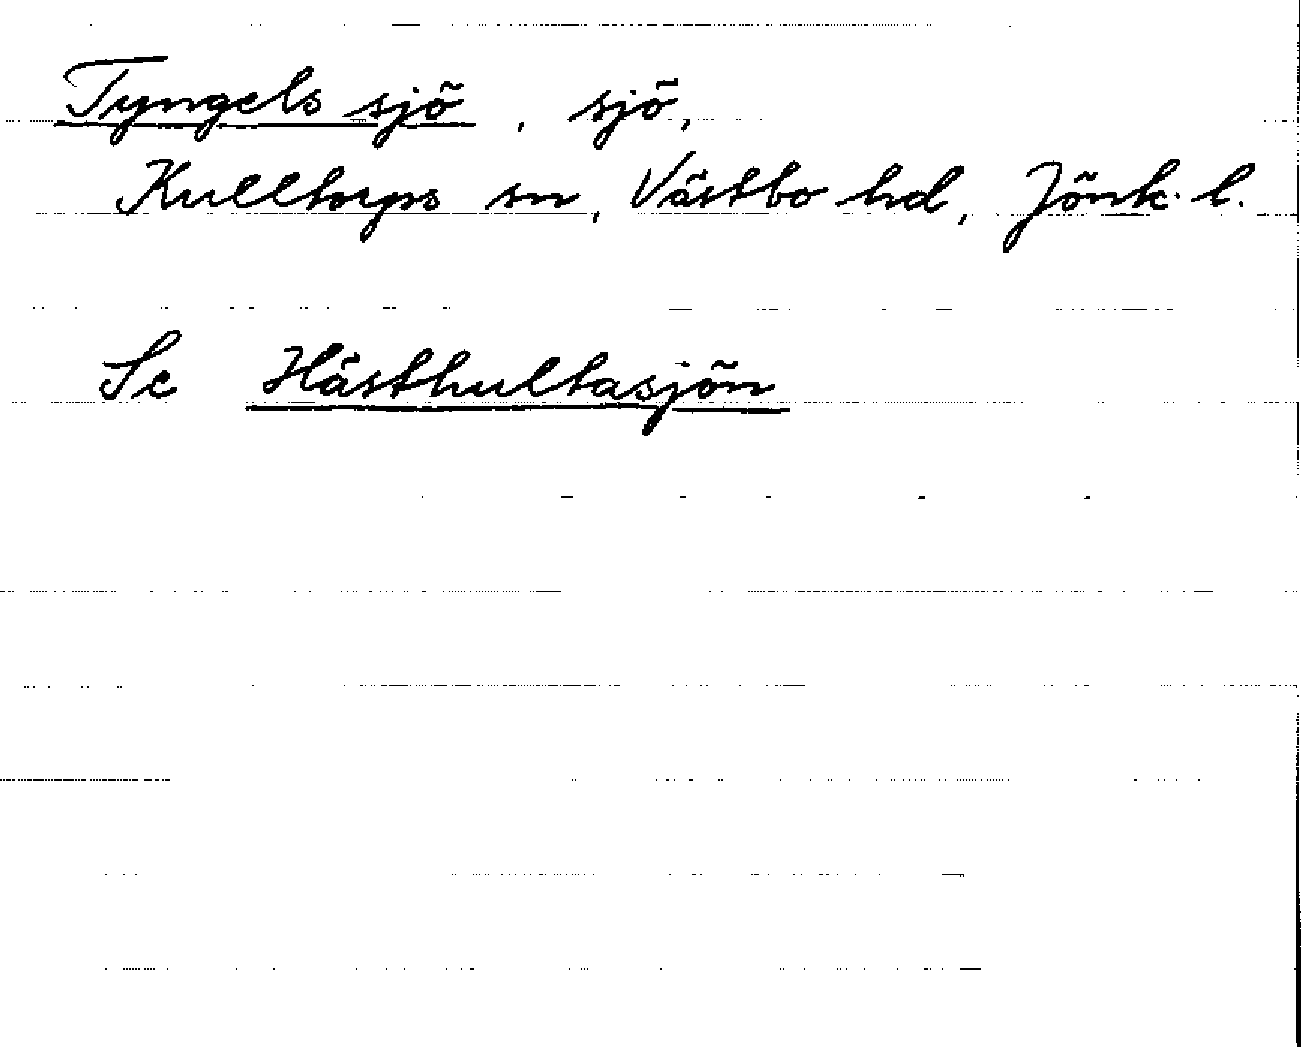 Tyngels sjö, sjö,
Kulltorps sn, Västbo hd, Jönk. l.
Se Hästhultasjön